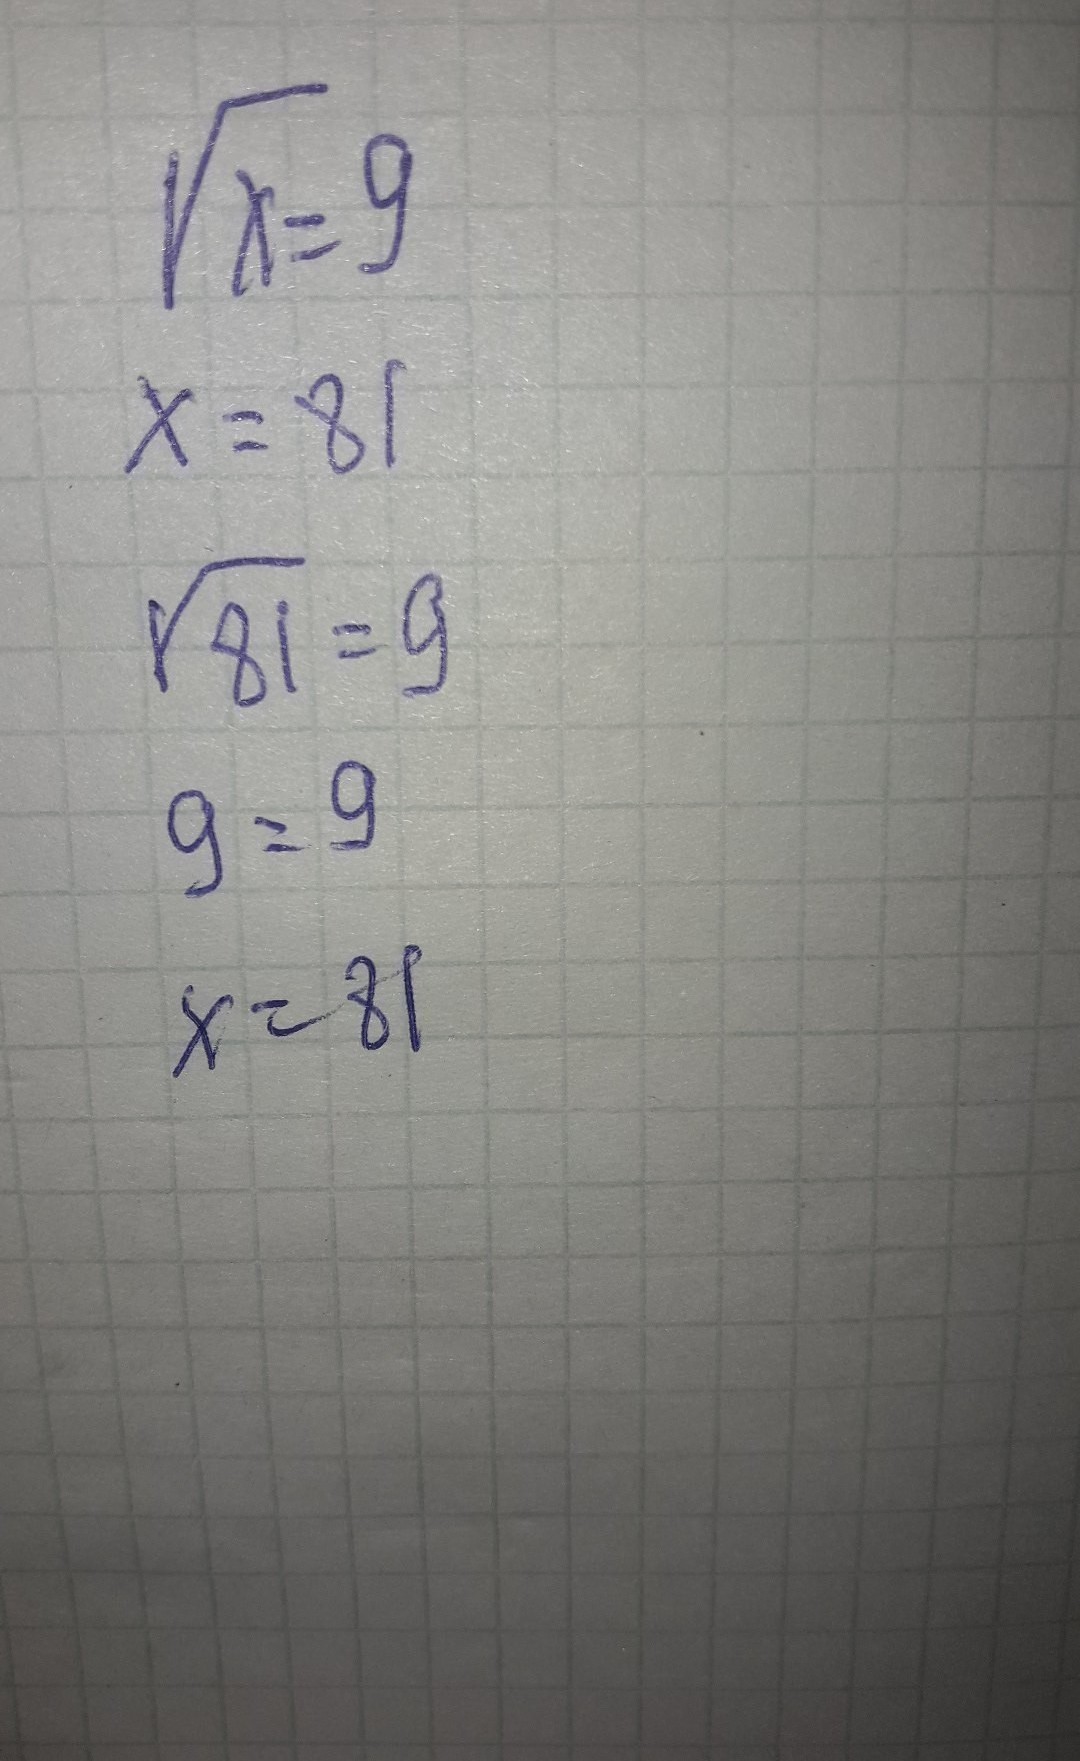 √x = 9
x = 81
√81 = 9
9 = 9
x = 81